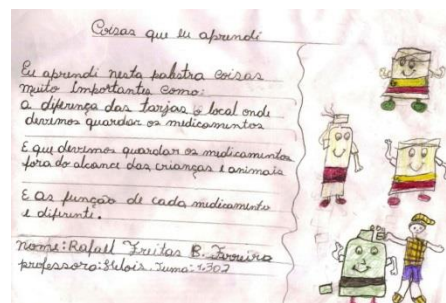 Coisas que eu aprendi
Eu aprendi nesta palestra coisas
muito importantes como:
a diferença das tarjas o local onde
devemos guardar os medicamentos
E que devemos guardar os medicamentos
fora do alcance das crianças e animais
E as função de cada medicamento
e diferente.
nome: Rafaell Freitas B. Ferreira
professora: Helois. Turma: 1302